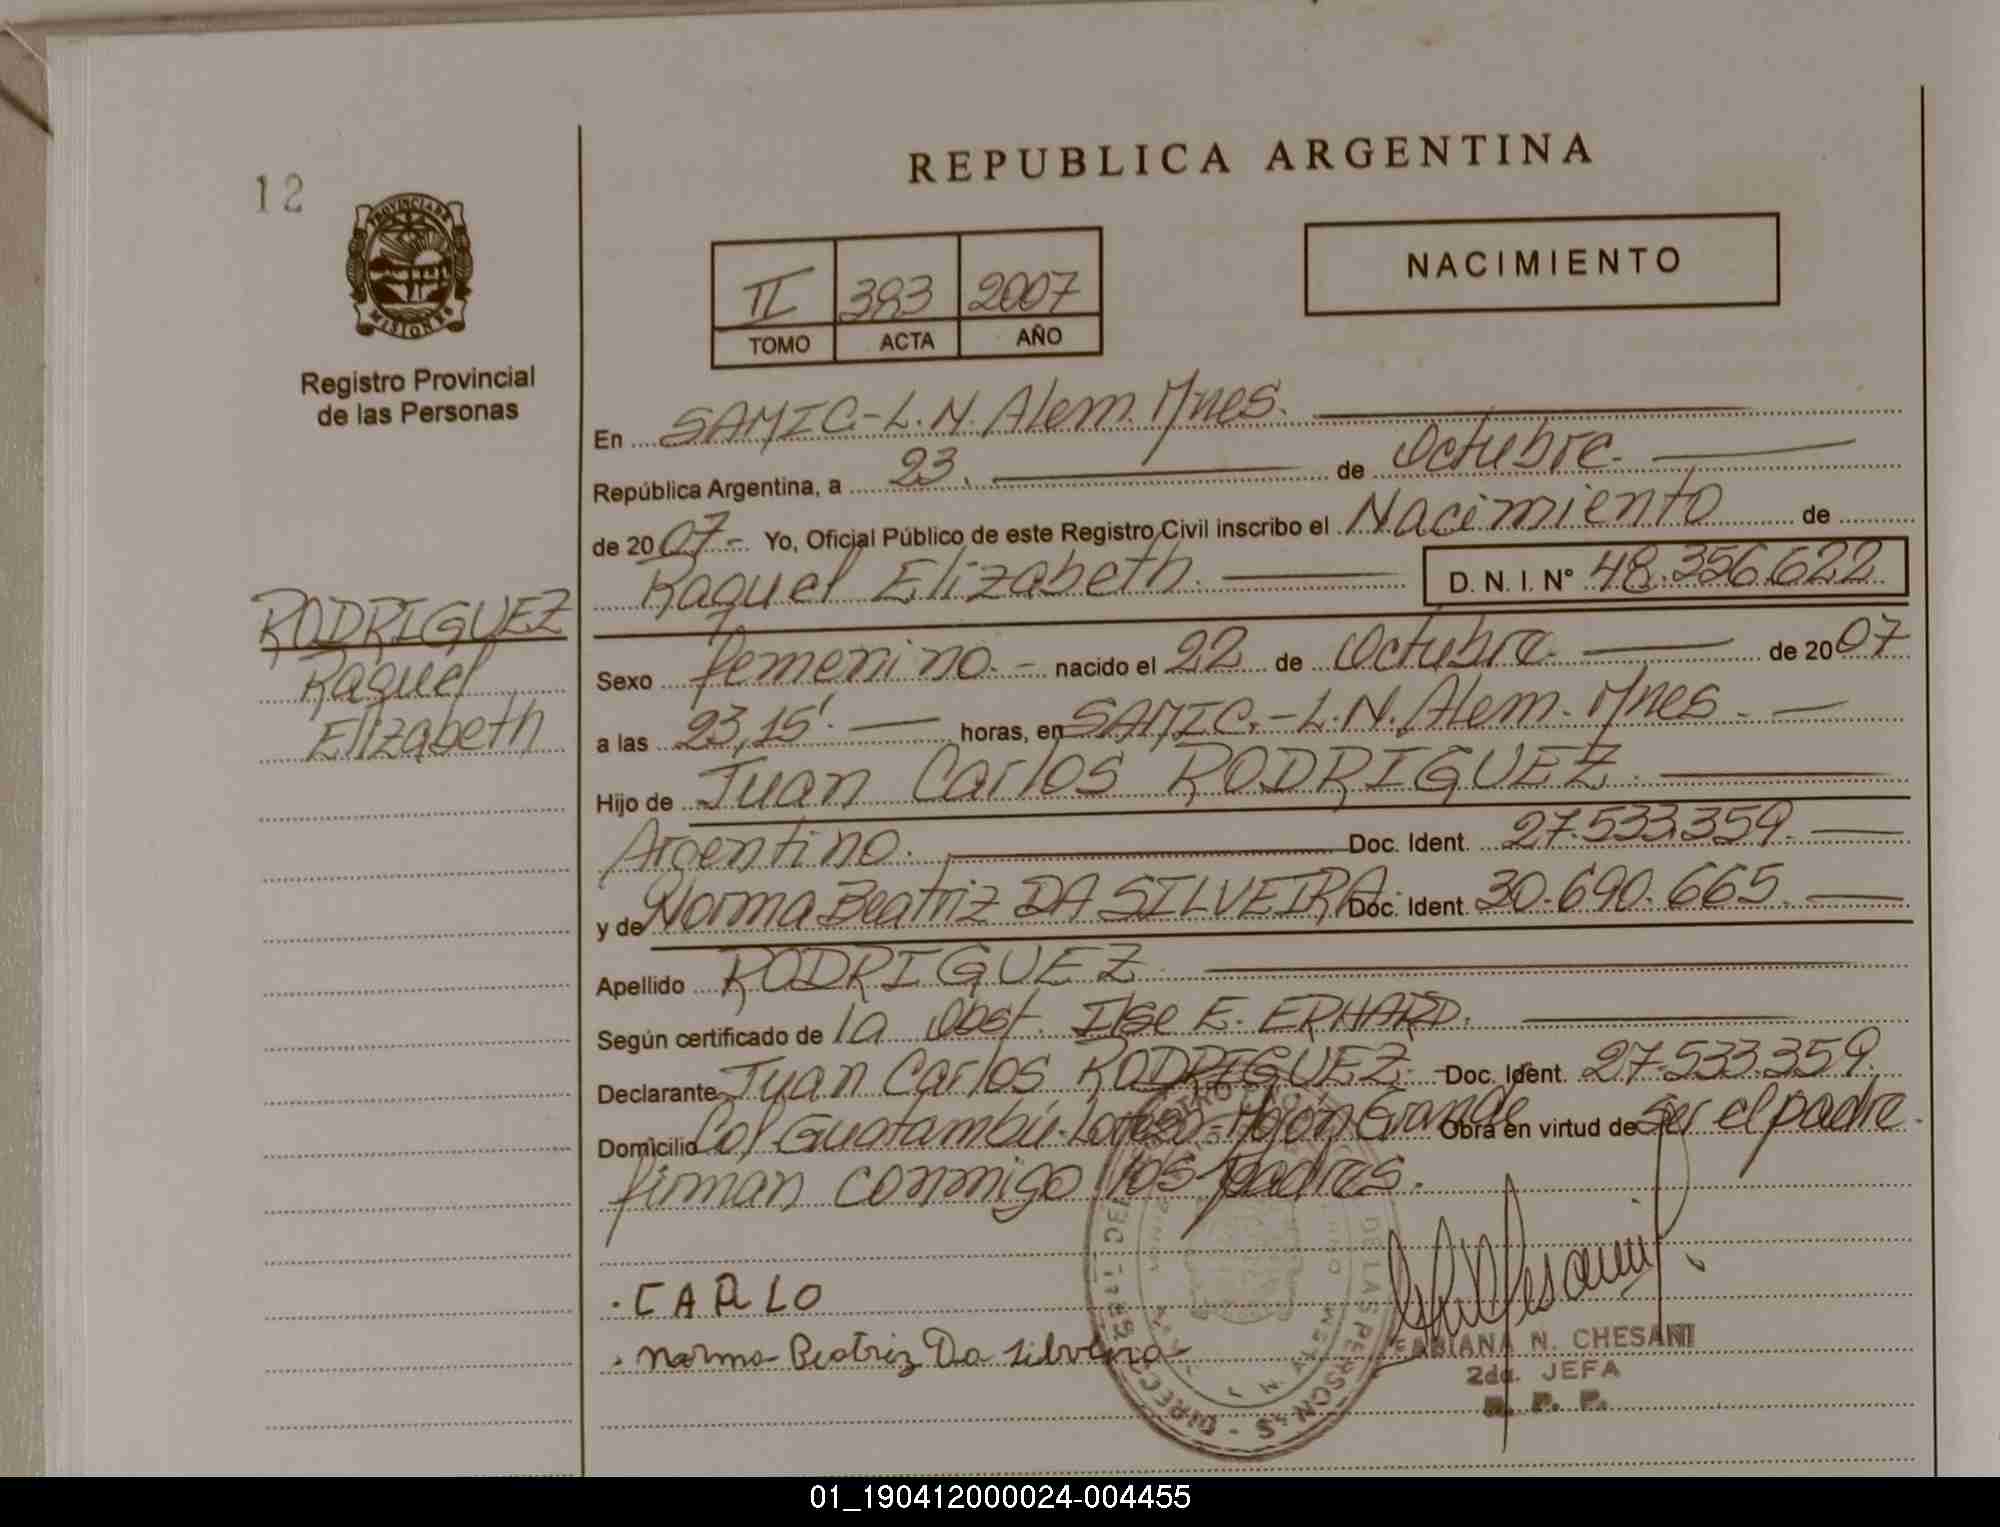 12
REPUBLICA ARGENTINA
PROVINCIA DE MISIONES
Registro Provincial
de las Personas
II 383 2007
TOMO ACTA AÑO
NACIMIENTO
En SAMIC-L.N.Alem.Mnes.
República Argentina, a 23. de Octubre.
de 2007- Yo, Oficial Público de este Registro Civil inscribo el Nacimiento de
Raquel Elizabeth. D. N. I. N° 48.356.622
RODRIGUEZ
Raquel
Elizabeth
Sexo femenino.- nacido el 22 de Octubre. de 2007
a las 23,15'. horas, en SAMIC.-L.N.Alem.Mnes.
Hijo de Juan Carlos RODRIGUEZ.
Argentino. Doc. Ident. 27.533.359.
y de Norma Beatriz DA SILVEIRA Doc. Ident. 30.690.665.
Apellido RODRIGUEZ.
Según certificado de la Obst. Ilse E. ERHARD.
Declarante Juan Carlos RODRIGUEZ. Doc. Ident. 27.533.359.
Domicilio Col Guatambú- Mojón Grande Obra en virtud de Ser el padre.
firman conmigo los padres.
. CARLO
. Norma Beatriz Da Silveira
FABIANA N. CHESANI
2da. JEFA
R. P. P.
01_190412000024-004455